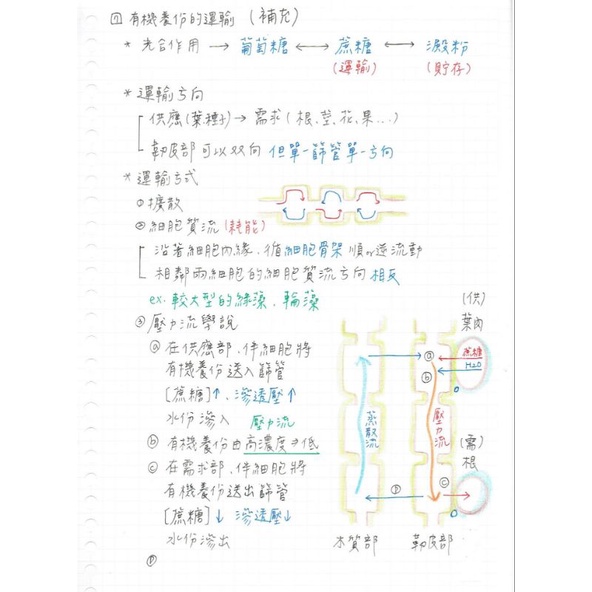 ⑦ 有機養份的運輸 (補充)
* 光合作用 → 葡萄糖 ↔ 蔗糖 ↔ 澱粉
(運輸) (貯存)
* 運輸方向
供應(葉、種子) → 需求 (根、莖、花、果...)
韌皮部可以双向 但單一篩管單一方向
* 運輸方式
①擴散
②細胞質流 (耗能)
沿著細胞內緣、循細胞骨架 順or逆流動
相鄰兩細胞的細胞質流方向 相反
ex. 較大型的綠藻、輪藻
③壓力流學說
ⓐ 在供應部、伴細胞將
有機養份送入篩管
[蔗糖]↑、滲透壓↑
水份滲入 壓力流
ⓑ 有機養份由高濃度→低
ⓒ 在需求部、伴細胞將
有機養份送出篩管
[蔗糖]↓ 滲透壓↓
水份滲出
ⓓ
(供)
葉肉
ⓐ 蔗糖
ⓑ H2O
蒸散流
壓力流
(需)
根
ⓓ ⓒ
木質部 韌皮部